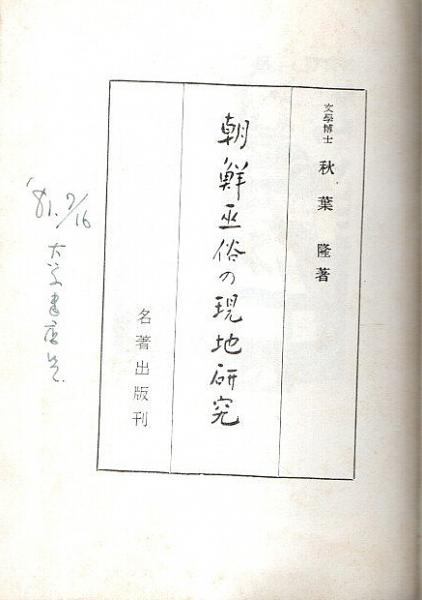 文學博士 秋葉 隆著
朝鮮巫俗の現地研究
名著出版刊
'81.7/16
大学書店